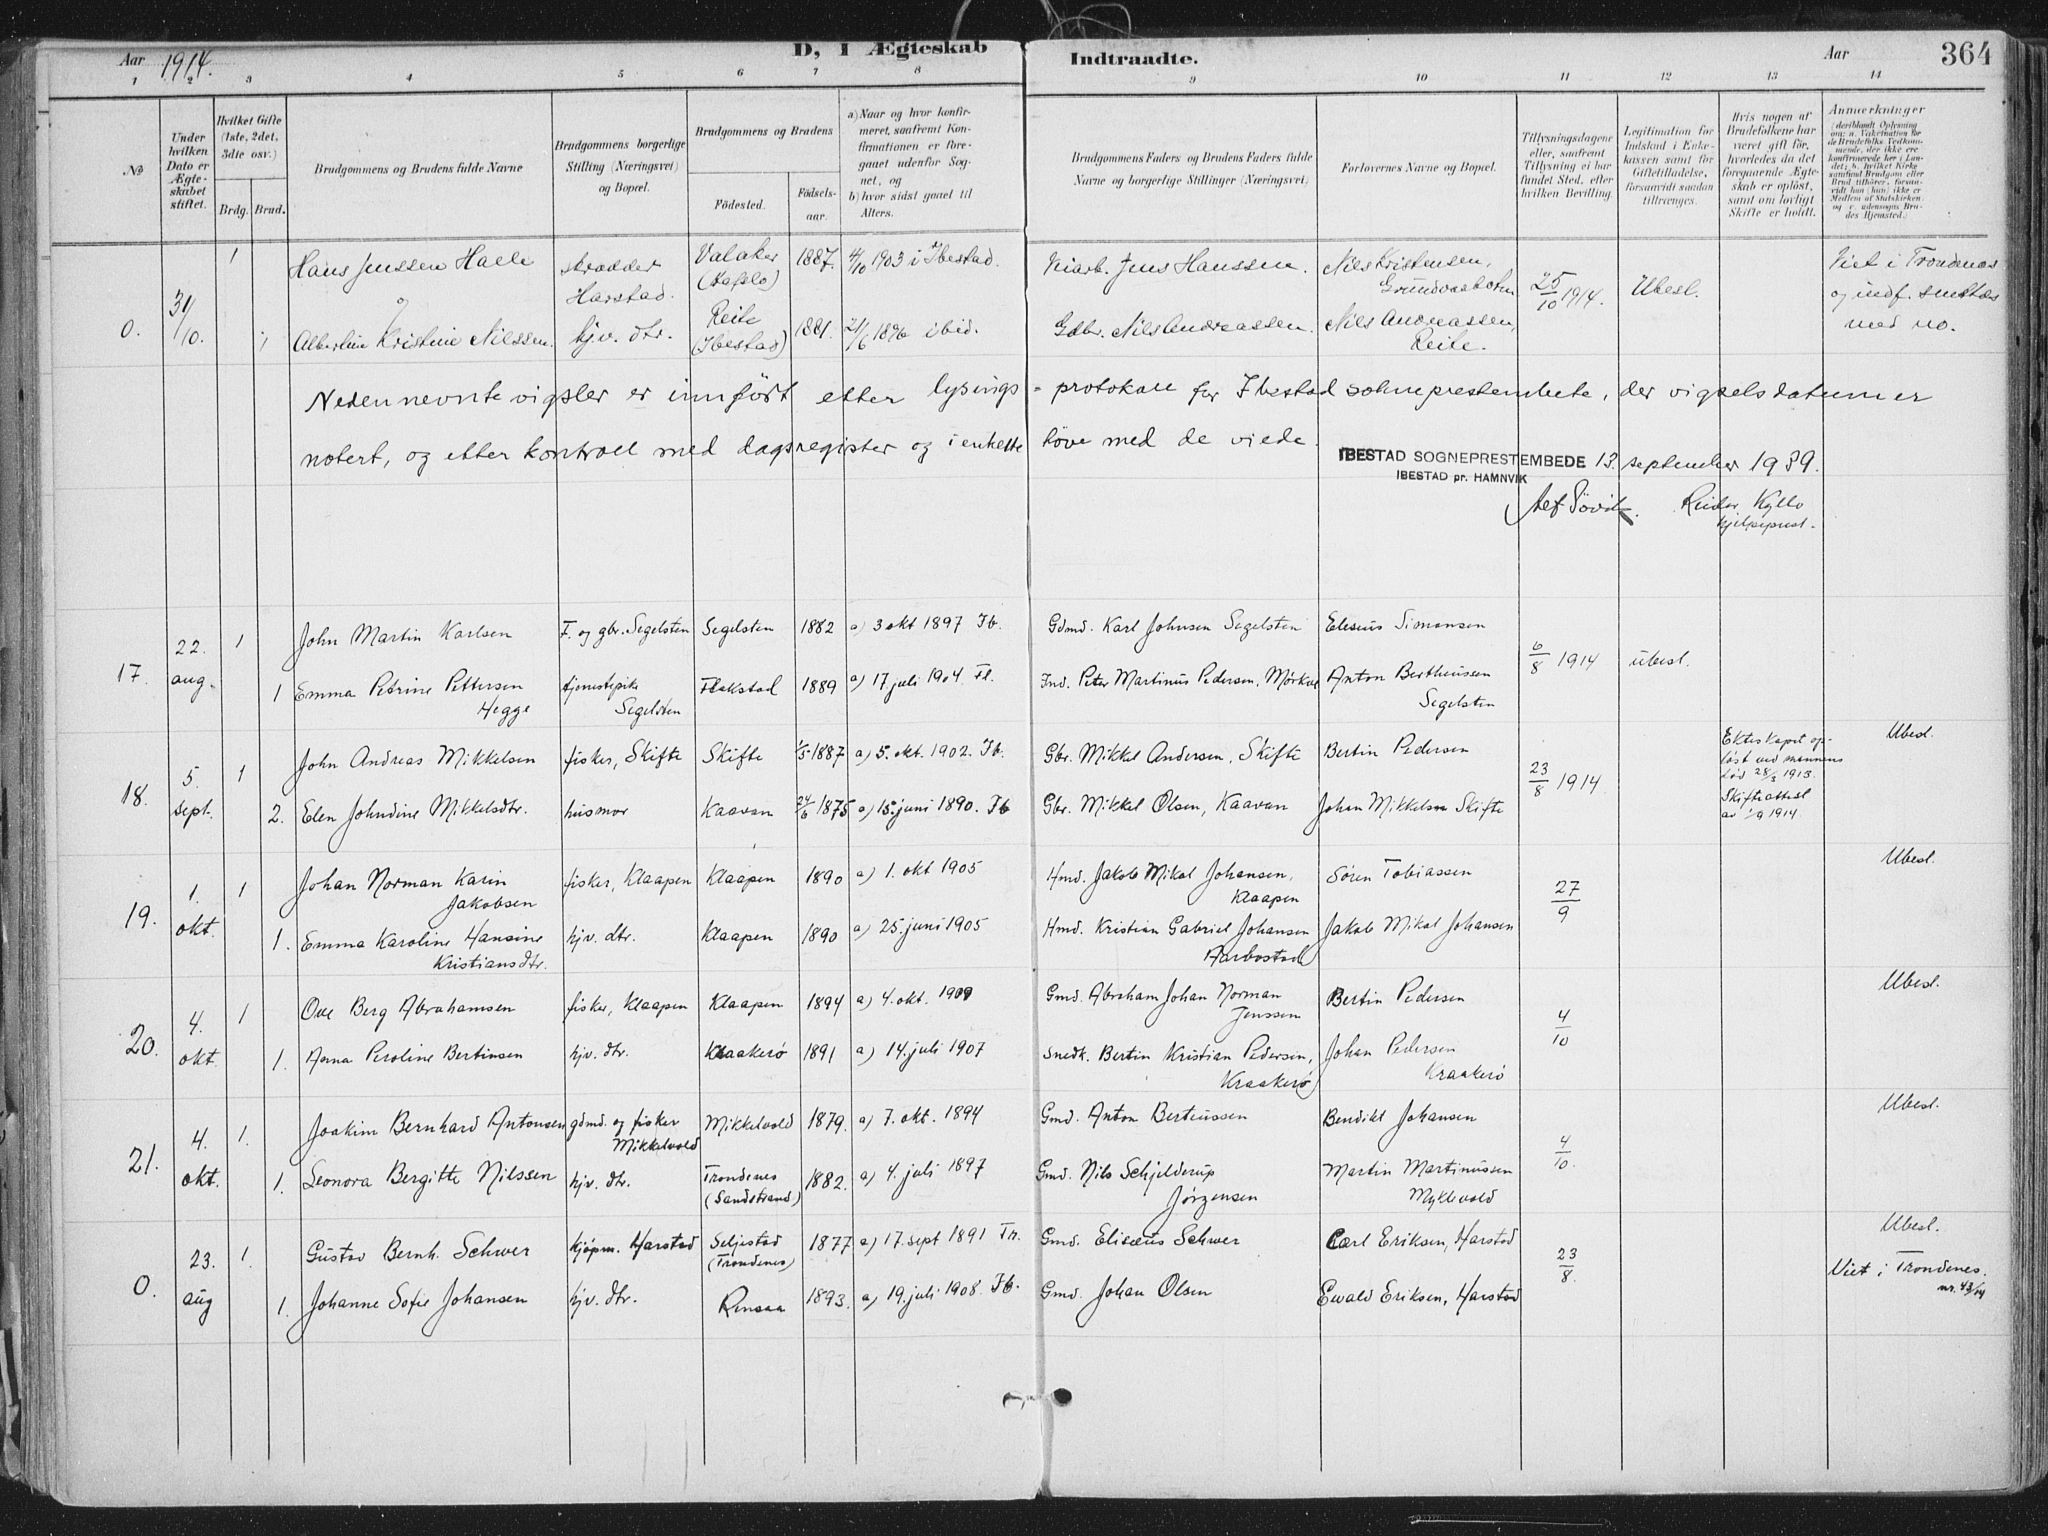 D, I Ægteskab Indtraadte.
364
Aar 1914. Aar
1 2 3 4 5 6 7 8 9 10 11 12 13 14
No
Under hvilken Dato er Ægte-skabet stiftet.
Hvilket Gifte (1ste, 2det, 3die osv.)
Brdg. Brud.
Brudgommens og Brudens fulde Navne
Brudgommens borgerlige Stilling (Næringsvei) og Bopæl.
Brudgommens og Brudens
Fødested.
Fødsels-aar.
a) Naar og hvor konfir-meret, saafremt Kon-firmationen er fore-gaaet udenfor Sog-net, og
b) hvor sidst gaaet til Alters.
Brudgommens Faders og Brudens Faders fulde Navne og borgerlige Stillinger (Næringsvei)
Forlovernes Navne og Bopæl.
Tillysningsdagene eller, saafremt Tillysning ei har fundet Sted, efter hvilken Bevilling.
Legitimation for Indskud i Enke-kassen samt for Giftetilladelse, forsaavidt saadan tiltrænges.
Hvis nogen af Brudefolkene har været gift før, hvorledes da det foregaaende Ægte-skab er opløst, samt om lovligt Skifte er holdt.
Anmerkninger
0. 31/10. 1 Hans Jenssen Halle skrædder Harstad. Valaker (Hafslo) 1887. 4/10 1903 i Ibestad. Jens Hanssen. Nils Kristensen, Grundvasbotn 25/10 1914. Ubesl. Viet i Trondenes og indf. smstds med no.
og
1 Albertine Kristine Nilssen. hjv. dtr. Reite (Ibestad) 1881. 21/6 1896 ibid. Gdbr. Nils Andreassen. Nils Andreassen, Reite.
Nedennevnte vigsler er innført etter lysings-protokoll for Ibestad sokneprestembete, der vigselsdatum er
notert, og etter kontroll med dagsregister og i enkelte høve med de viede.
IBESTAD SOGNEPRESTEMBEDE 13. september 1939.
IBESTAD pr. HAMNVIK
Alf Søvik. Reidar Kyllo
hjelpeprest.
17. 22. aug. 1 John Martin Karlsen F. og gbr. Segelsten Segelsten 1882 a) 3 okt 1897 Ib. Gdmd. Karl Johnsen Segelsten Eleseus Simonsen 6/8 1914 ubesl.
1 Emma Petrine Pettersen Hegge tjenestepike Segelsten Flakstad 1889 a) 17 juli 1904 Fl. Ind. Peter Martinus Pedersen, Anton Bertheussen Segelsten
18. 5. sept. 1 John Andreas Mikkelsen fisker, Skifte Skifte 1/5 1887 a) 5. okt. 1902. Ib. Gbr. Mikkel Andersen, Skifte Bertin Pedersen 23/8 1914 Ekteskapet op-løst ved mannens død 28/3 1913. Skifteattest av 1/9 1914. Ubesl.
2. Elen Johndine Mikkelsdtr. husmor Kaavan 24/6 1875 a) 15. juni 1890. Ib Gbr. Mikkel Olsen, Kaavan Johan Mikkelsen Skifte
19. 1. okt. 1 Johan Norman Karin Jakobsen fisker, Klaapen Klaapen 1890 a) 1. okt 1905 Hmd. Jakob Mikal Johansen, Klaapen Søren Tobiassen 27/9 Ubesl.
1. Emma Karoline Hansine Kristiansdtr. hjv. dtr. Klaapen 1890 a) 25. juni 1905 Hmd. Kristian Gabriel Johansen Aarbostad Jakob Mikal Johansen
20. 4. okt. 1 Ove Berg Abrahamsen fisker, Klaapen Klaapen 1894 a) 4. okt. 1909 Gmd. Abraham Johan Norman Jenssen Bertin Pedersen 4/10 Ubesl.
1. Anna Peroline Bertinsen hjv. dtr. Kraakerø 1891 a) 14. juli 1907 Snedk. Bertin Kristian Pedersen, Kraakerø Johan Pedersen Kraakerø
21. 4. okt. 1. Joakim Bernhard Antonsen gdmd. og fisker Mikkelvold Mikkelvold 1879. a) 7. okt. 1894 Gmd. Anton Berteussen Bendikt Johansen 4/10. Ubesl.
1. Leonora Bergitte Nilssen hjv. dtr. Trondenes (Sandstrand) 1882. a) 4. juli 1897 Gmd. Nils Schjelderup Jørgensen Martin Martinussen Myklevold
0. 23. aug 1. Gustav Bernh. Schwer kjøpm. Harstad Seljestad (Trondenes) 1877 a) 17. sept 1891 Tr. Gmd. Eliseus Schwer Carl Eriksen, Harstad 23/8. Ubesl. Viet i Trondenes. nr. 43/14
1. Johanne Sofie Johansen hjv. dtr. Rensaa 1893. a) 19. juli 1908. Ib. Gmd. Johan Olsen Ewald Eriksen, Harstad